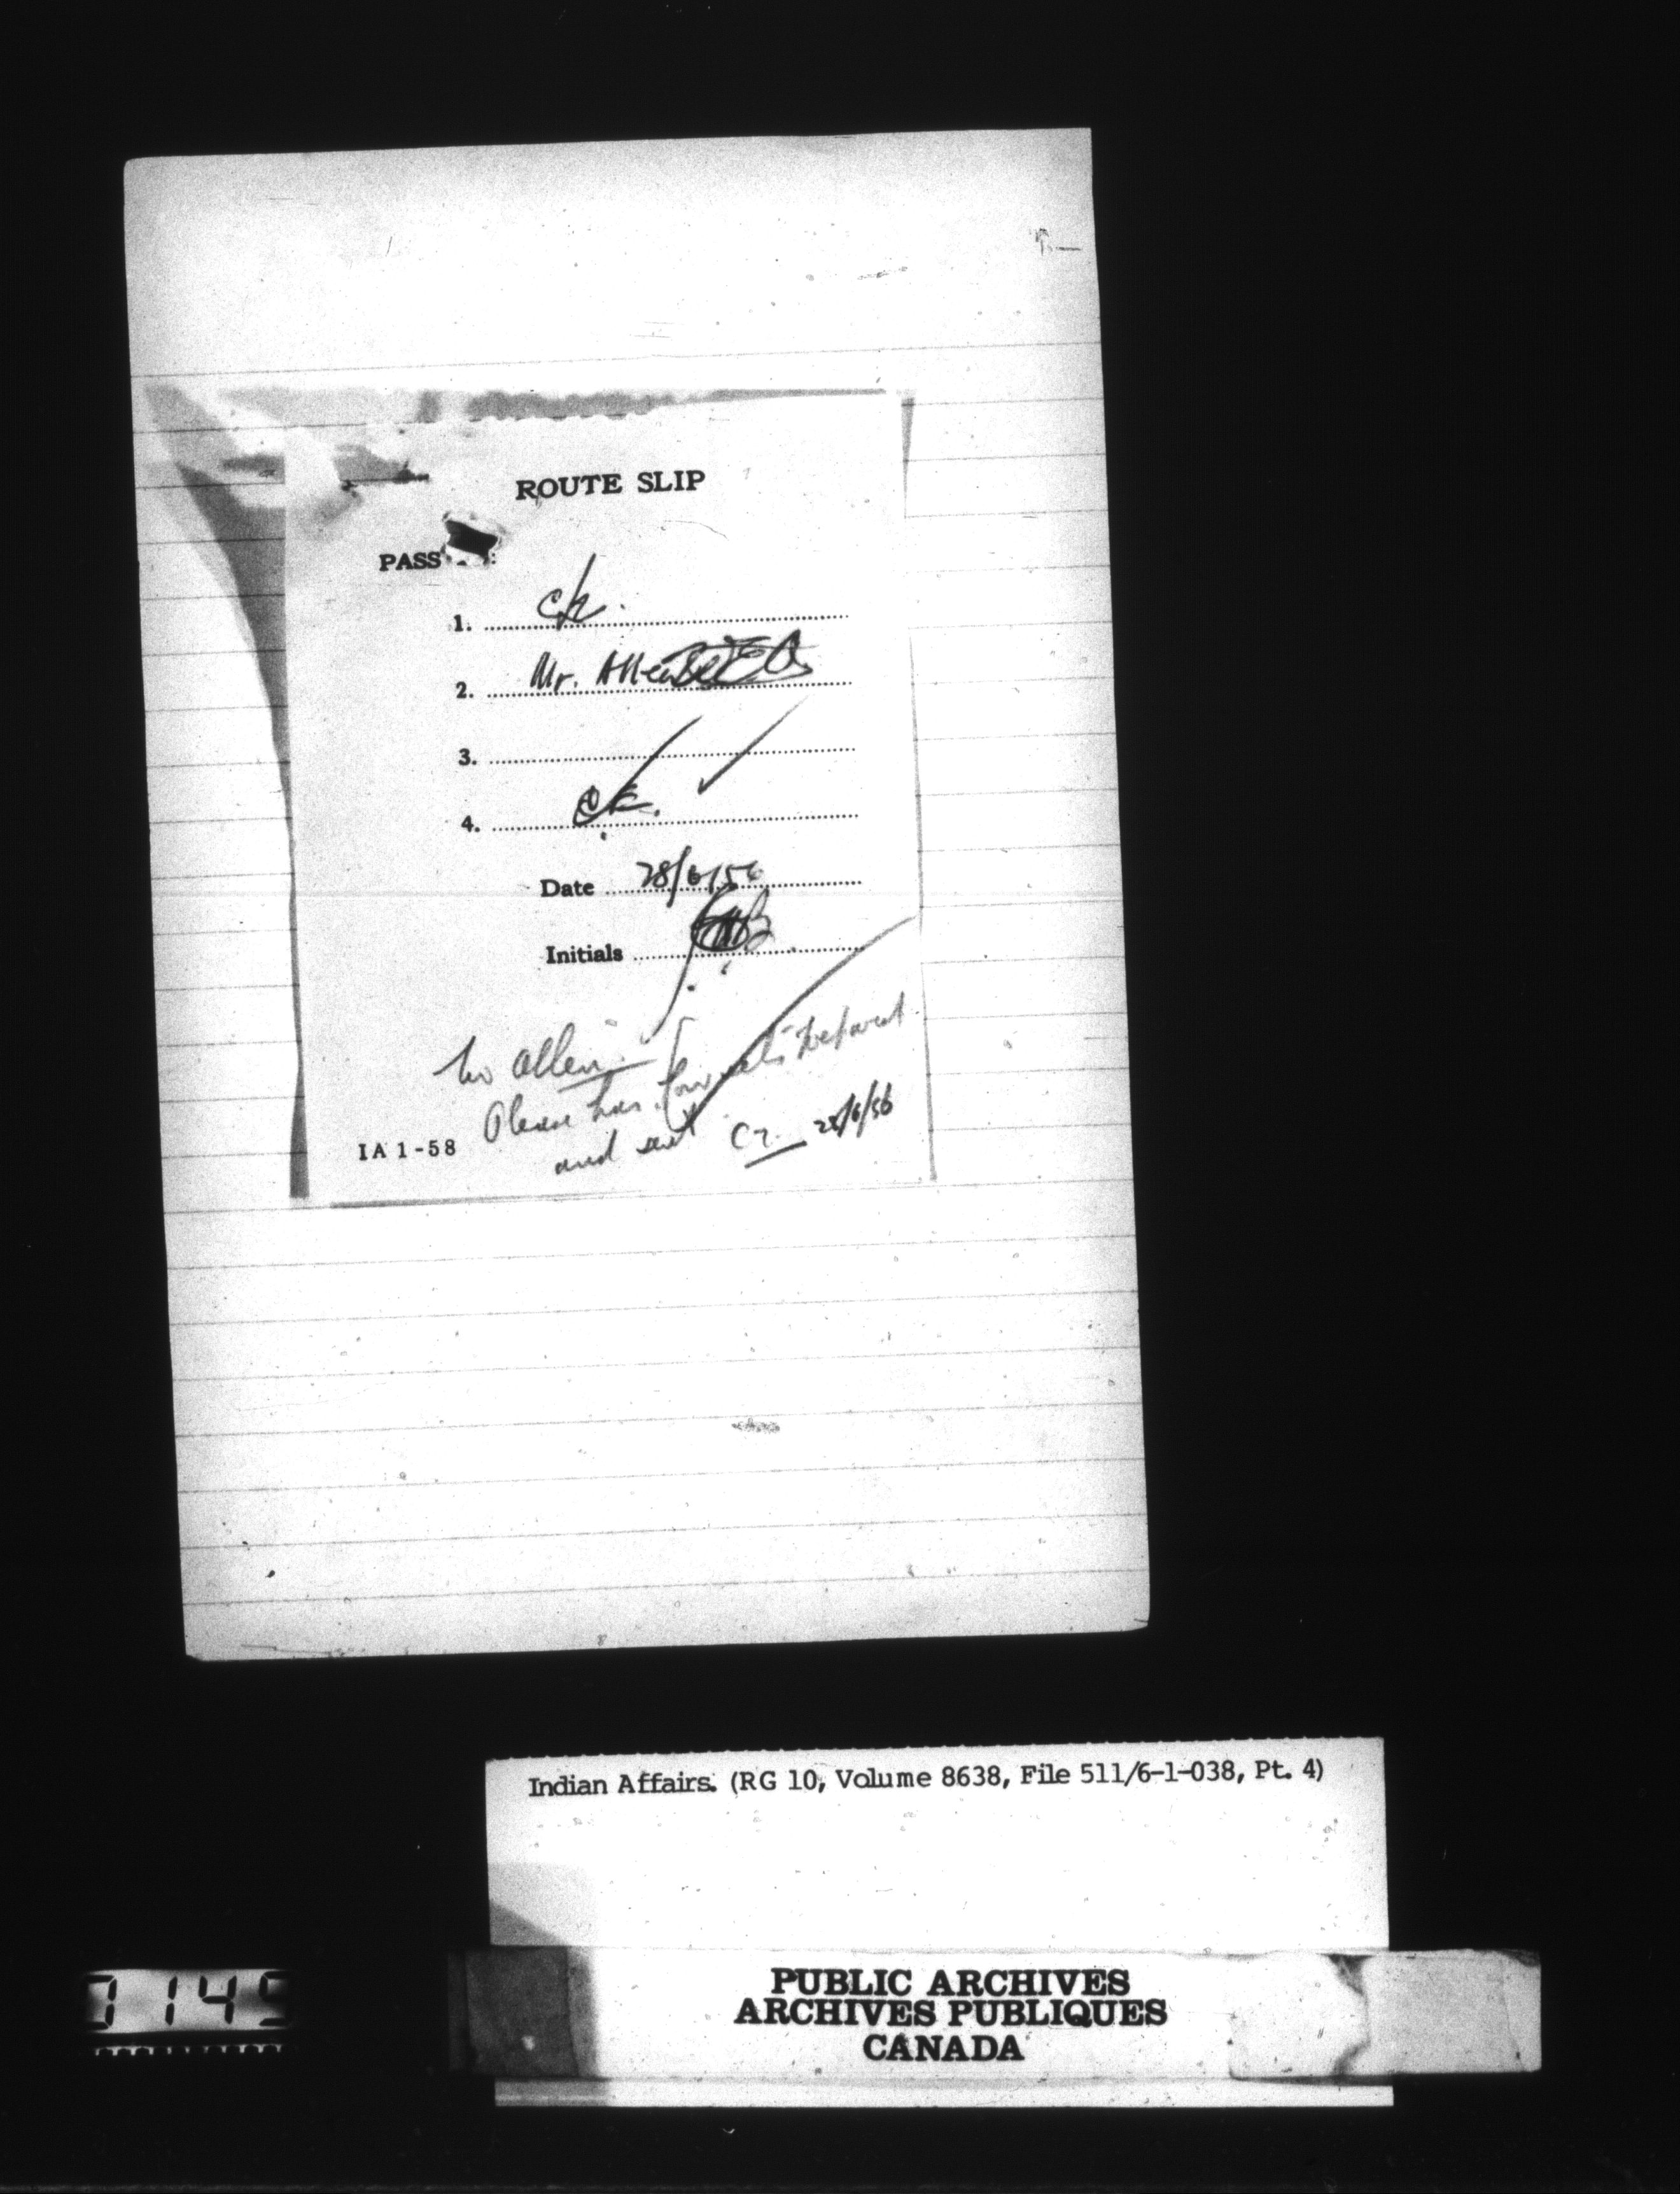 ROUTE SLIP
PASS :
1. ck.
2. Mr. Allen
3.
4. C.K.
Date 28/6/56
Initials
Mr Allen
Please have prepared
and sent
28/6/56
IA 1-58
Indian Affairs. (RG 10, Volume 8638, File 511/6-1-038, Pt. 4)
PUBLIC ARCHIVES
ARCHIVES PUBLIQUES
CANADA